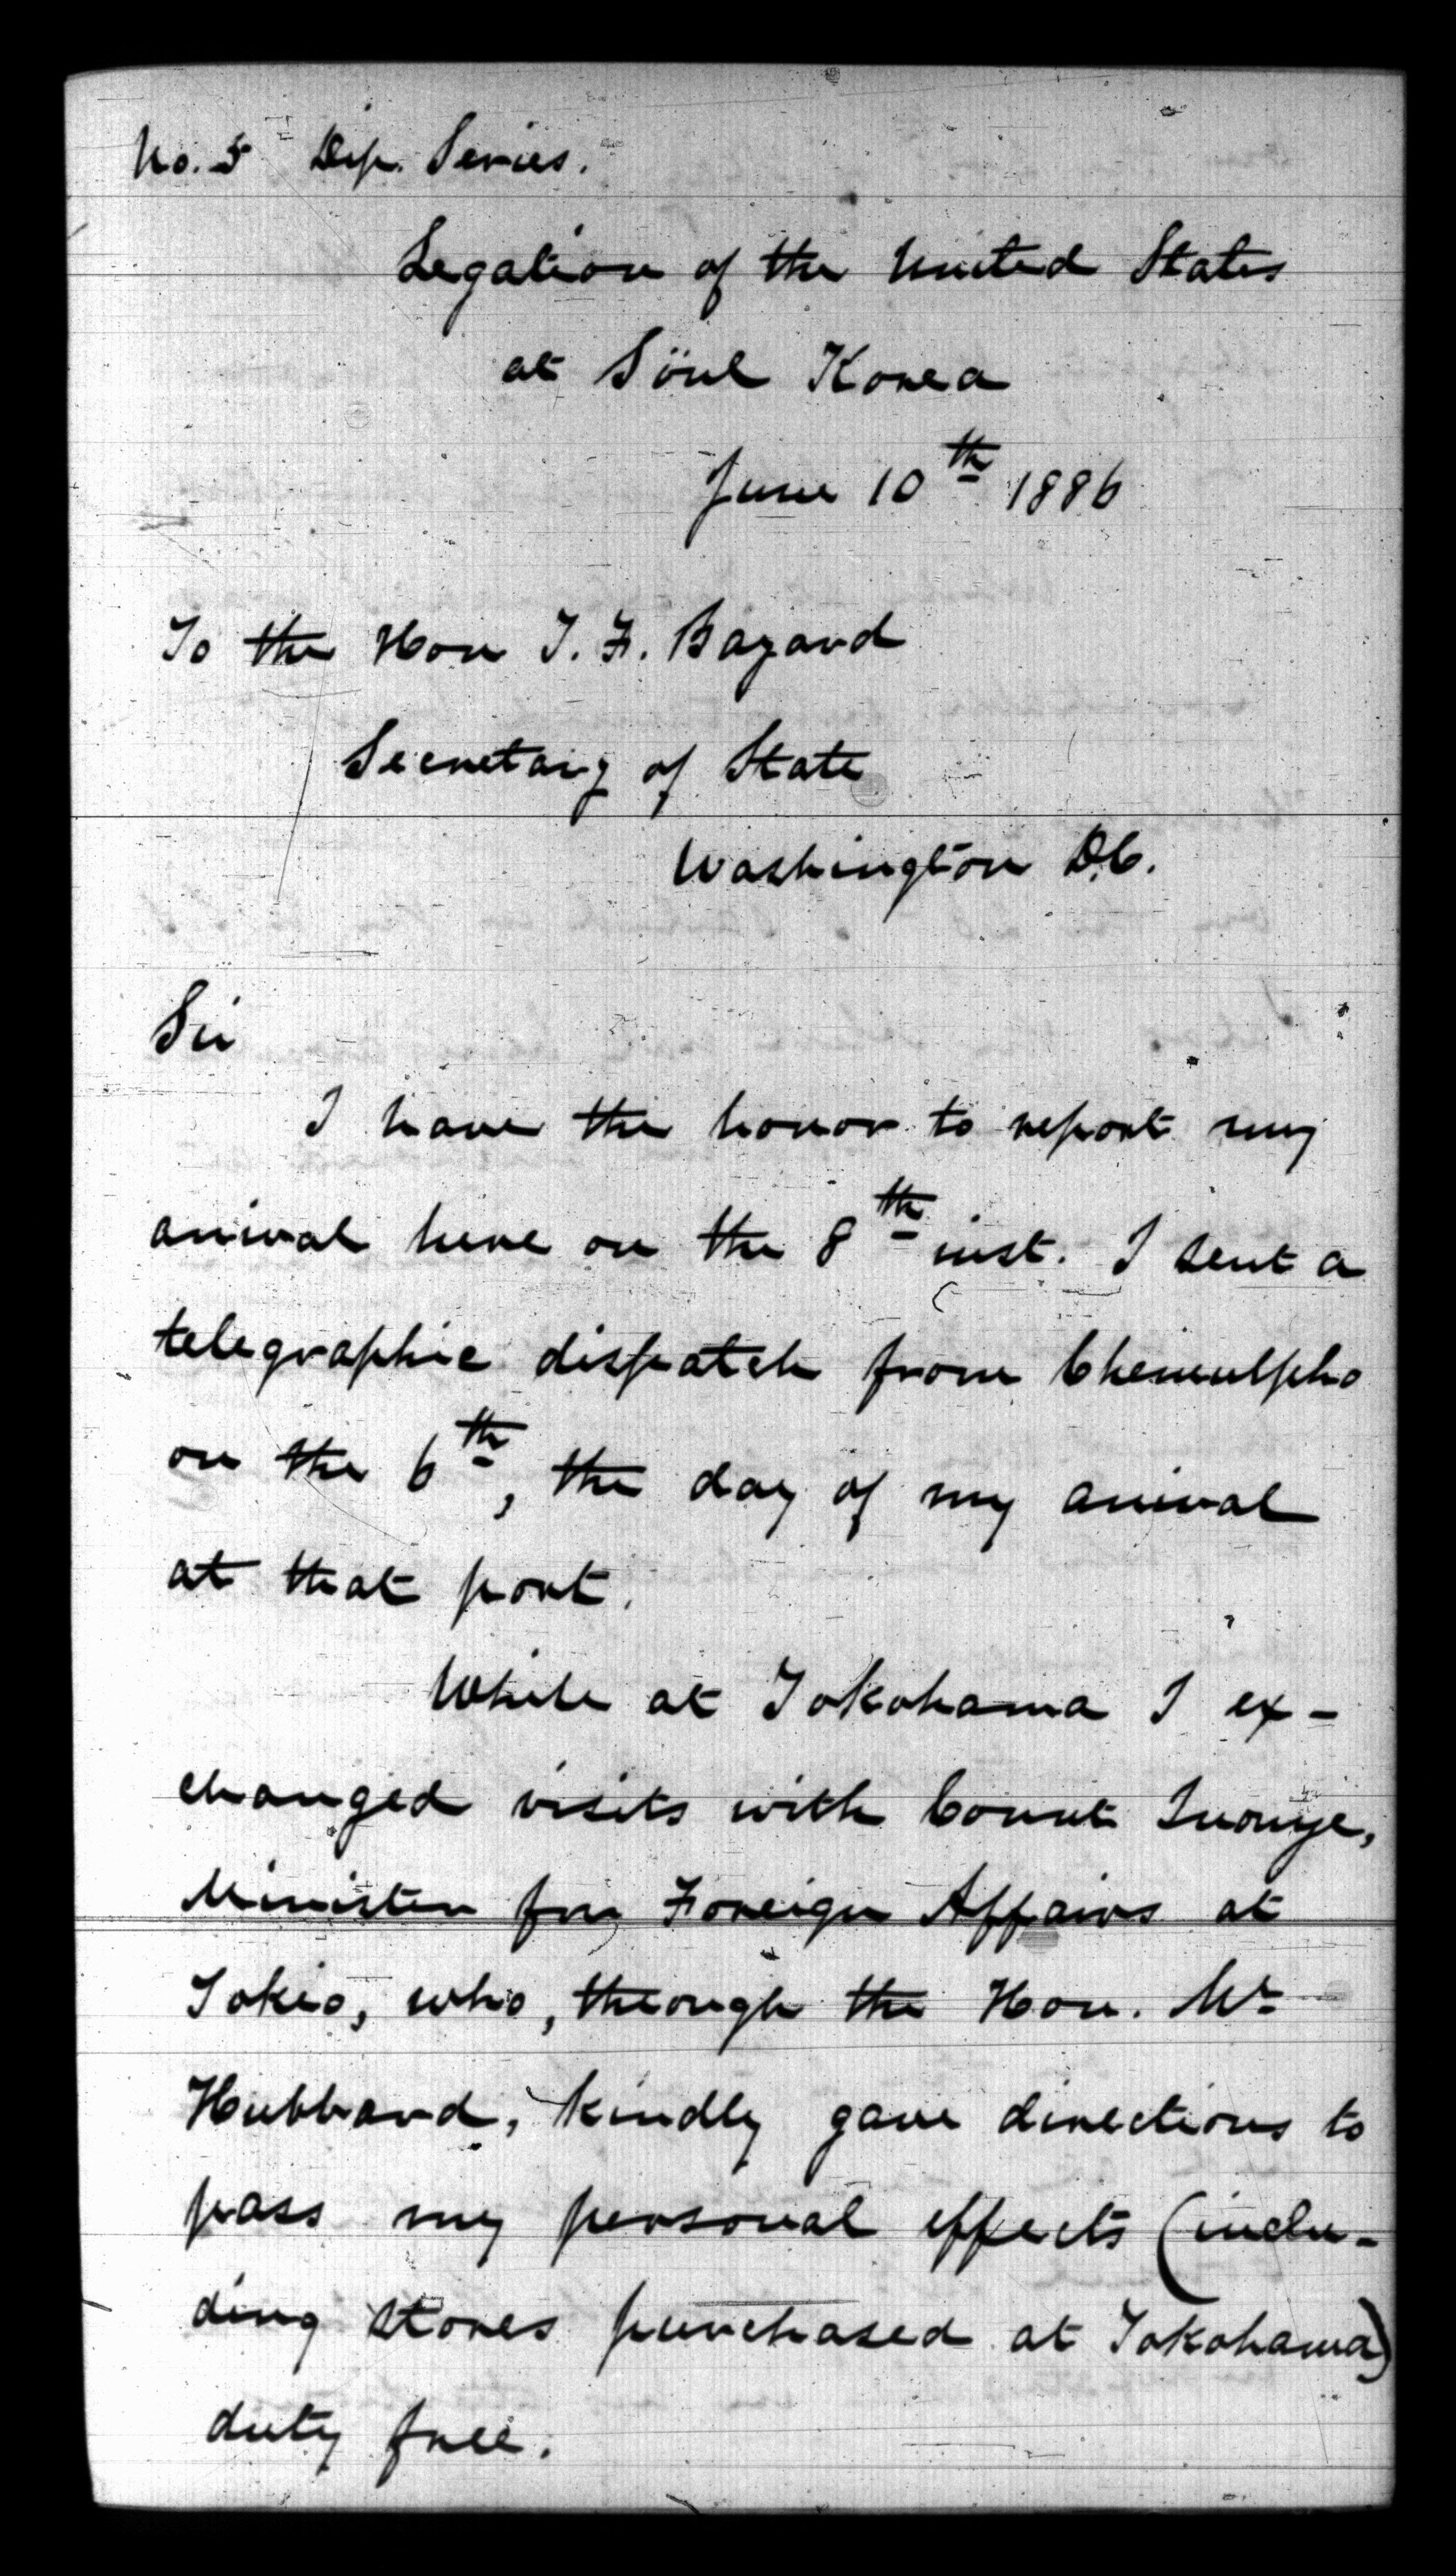 No. 5 Dip. Series.
Legation of the United States
at Söul Korea
June 10th 1886
To the Hon T. F. Bayard
Secretary of State
Washington D.C.
Sir
I have the honor to report my
arrival here on the 8th inst. I sent a
telegraphic dispatch from Chemulpho
on the 6th, the day of my arrival
at that port.
While at Yokohama I ex-
changed visits with Count Inouye,
Minister for Foreign Affairs at
Tokio, who, through the Hon. Mr
Hubbard, kindly gave directions to
pass my personal effects (inclu-
ding stores purchased at Yokohama)
duty free.